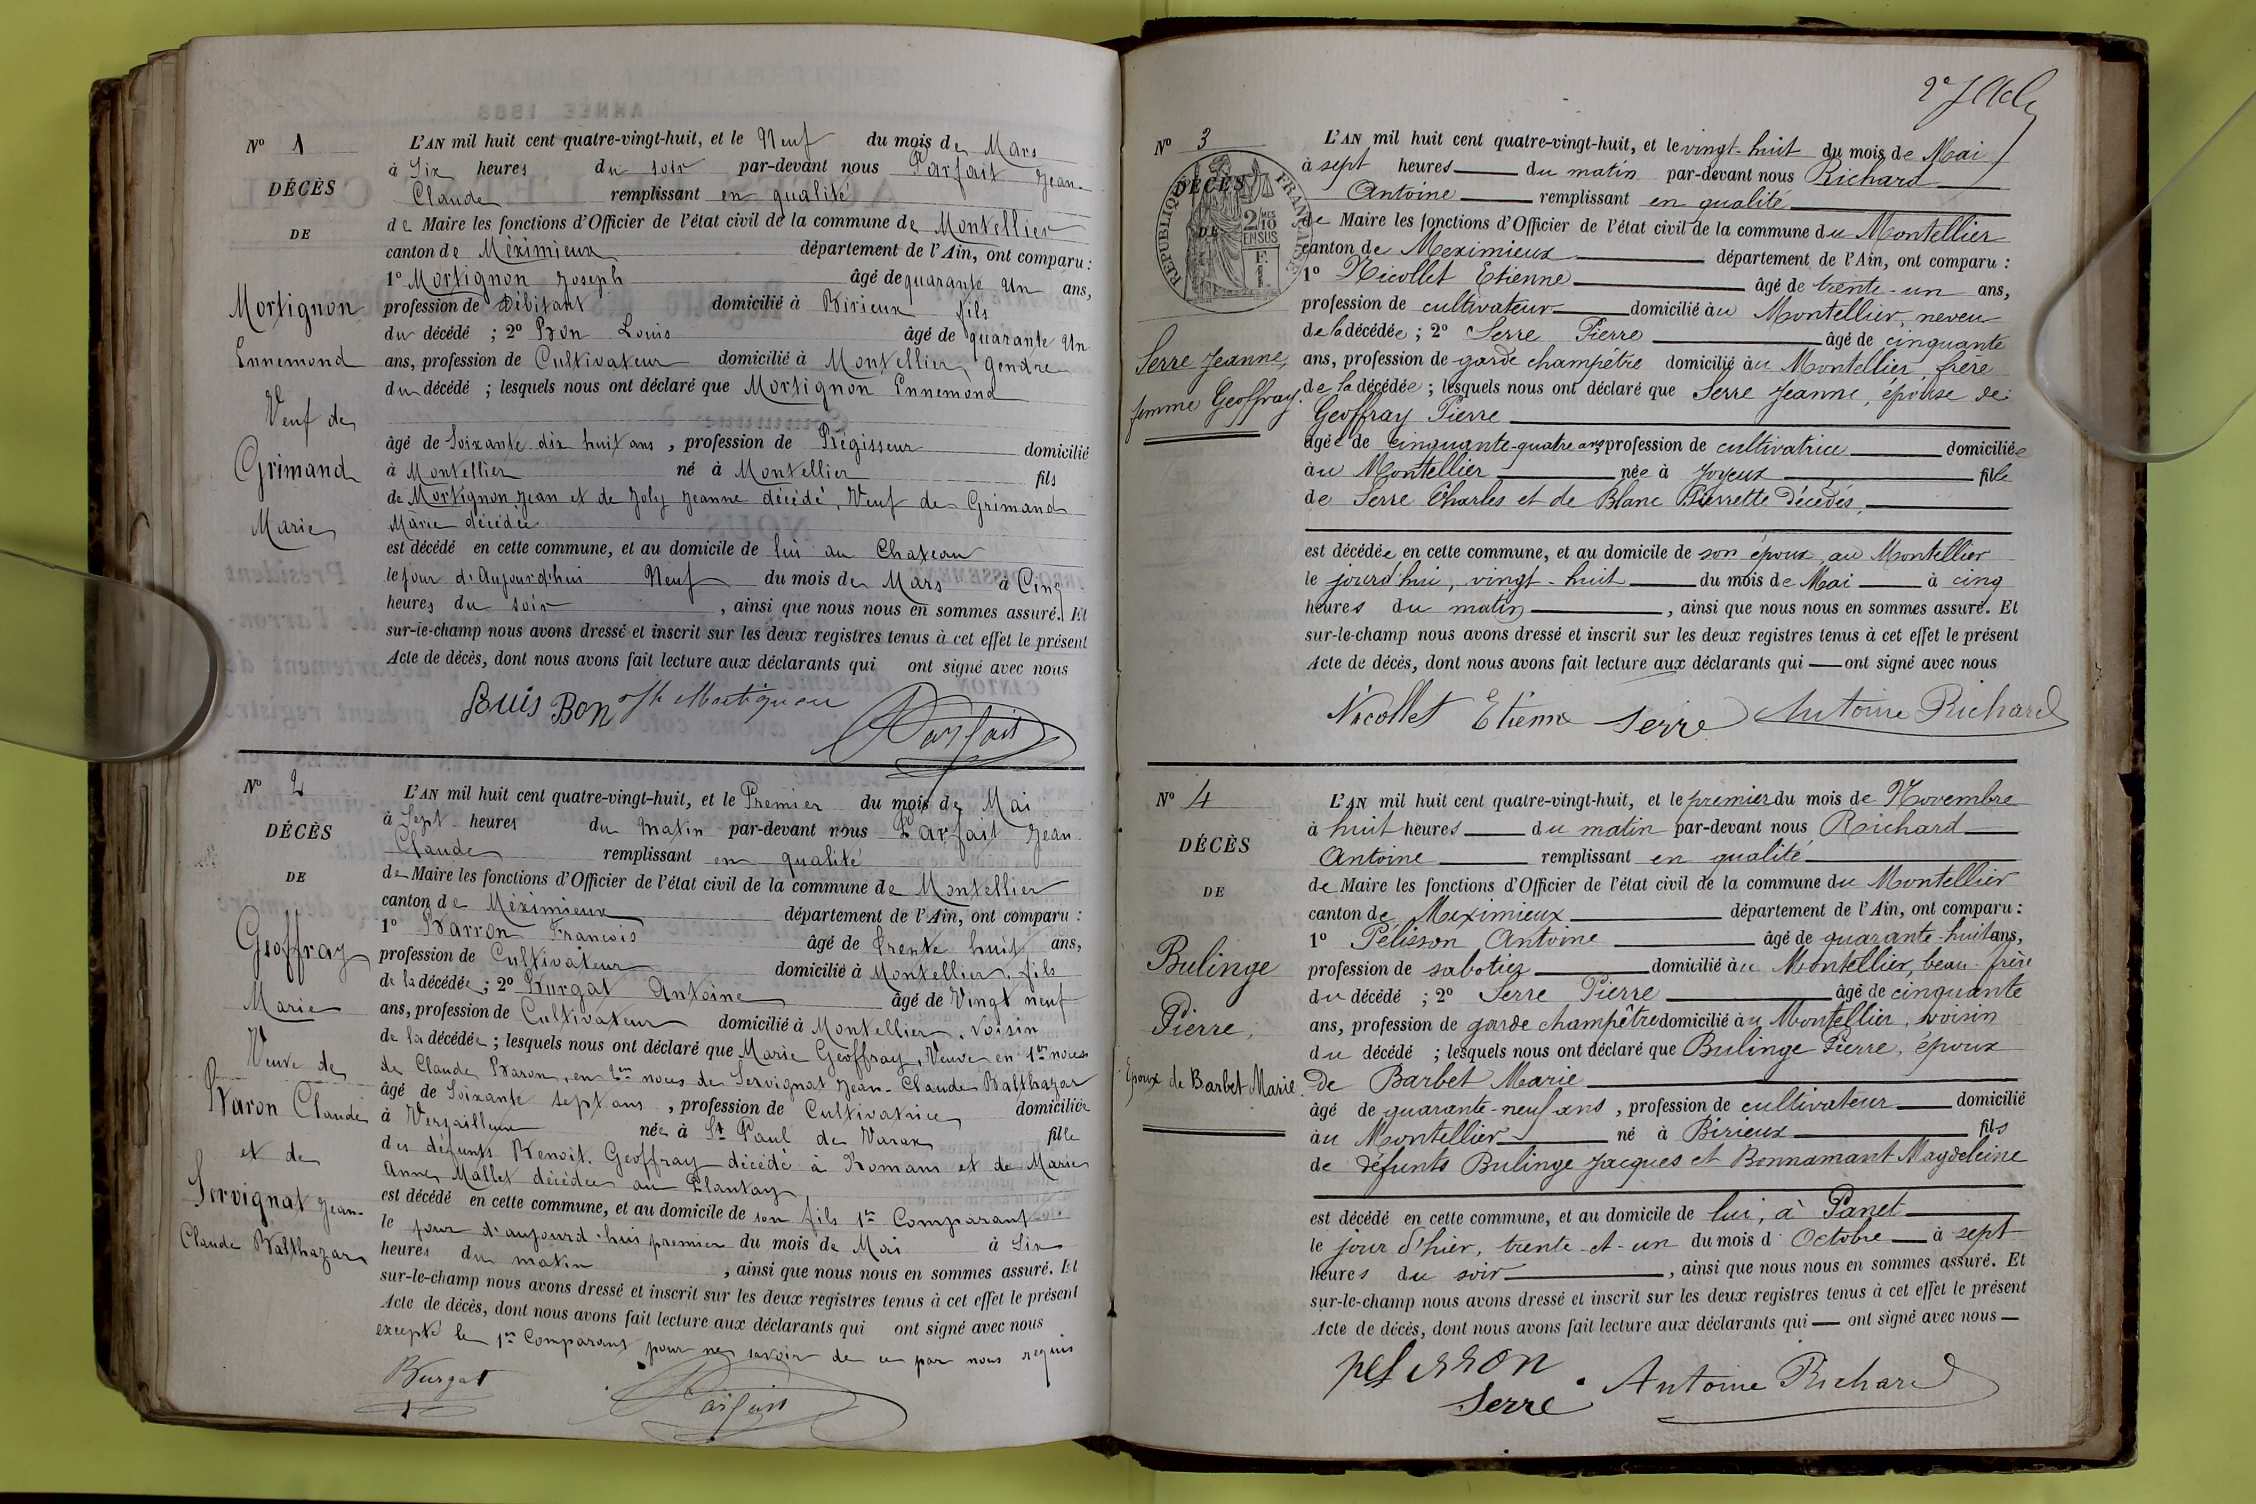 N° 1
DÉCÈS
DE
Mortignon
Ennemond
Veuf de
Grimand
Marie
L'AN mil huit cent quatre-vingt-huit, et le Neuf du mois de Mars
à Six heures du soir par-devant nous Parfait Jean-
Claude remplissant en qualité
de Maire les fonctions d'Officier de l'état civil de la commune de Montellier
canton de Méximieux département de l'Ain, ont comparu :
1° Mortignon Joseph âgé de quarante Un ans,
profession de Débitant domicilié à Birieux fils
du décédé ; 2° Bon Louis âgé de quarante Un
ans, profession de Cultivateur domicilié à Montellier, gendre
du décédé ; lesquels nous ont déclaré que Mortignon Ennemond
âgé de Soixante dix huit ans, profession de Régisseur domicilié
à Montellier né à Montellier fils
de Mortignon Jean et de Joly Jeanne décédé, Veuf de Grimand
Marie décédée
est décédé en cette commune, et au domicile de lui au Chateau
le jour d'Aujourd'hui Neuf du mois de Mars à Cinq
heures du soir, ainsi que nous nous en sommes assuré. Et
sur-le-champ nous avons dressé et inscrit sur les deux registres tenus à cet effet le présent
Acte de décès, dont nous avons fait lecture aux déclarants qui ont signé avec nous
Louis Bon Mortignon
Parfait
N° 2
DÉCÈS
DE
Geoffray
Marie
Veuve de
Baron Claude
et de
Servignat Jean-
Claude Balthazar
L'AN mil huit cent quatre-vingt-huit, et le Premier du mois de Mai
à Sept heures du matin par-devant nous Parfait Jean
Claude remplissant en qualité
de Maire les fonctions d'Officier de l'état civil de la commune de Montellier
canton de Méximieux département de l'Ain, ont comparu :
1° Barron François âgé de trente huit ans,
profession de Cultivateur domicilié à Montellier, fils
de la décédée ; 2° Burgat Antoine âgé de Vingt neuf
ans, profession de Cultivateur domicilié à Montellier, voisin
de la décédée ; lesquels nous ont déclaré que Marie Geoffray, Veuve en 1res noces
de Claude Baron, en 2mes noces de Servignat Jean-Claude Balthazar
âgé de Soixante sept ans, profession de Cultivatrice domiciliée
à Versailleux née à St Paul de Varax fille
des défunts Benoit Geoffray décédé à Romans et de Marie
Anne Mallet décédée au Plantay
est décédé en cette commune, et au domicile de son fils 1er Comparant
le jour d'aujourd'hui premier du mois de Mai à Six
heures du matin, ainsi que nous nous en sommes assuré. Et
sur-le-champ nous avons dressé et inscrit sur les deux registres tenus à cet effet le présent
Acte de décès, dont nous avons fait lecture aux déclarants qui ont signé avec nous
excepté le 1er Comparant pour ne savoir de ce par nous requis
Burgat Parfait
N° 3
DÉCÈS
DE
RÉPUBLIQUE FRANÇAISE
2/10 EN SUS
Serre Jeanne,
femme Geoffray.
L'AN mil huit cent quatre-vingt-huit, et le vingt-huit du mois de Mai
à sept heures du matin par-devant nous Richard
Antoine remplissant en qualité
de Maire les fonctions d'Officier de l'état civil de la commune du Montellier
canton de Meximieux département de l'Ain, ont comparu :
1° Nicollet Etienne âgé de trente-un ans,
profession de cultivateur domicilié au Montellier, neveu
de la décédée ; 2° Serre Pierre âgé de cinquante
ans, profession de garde champêtre domicilié au Montellier, frère
de la décédée ; lesquels nous ont déclaré que Serre Jeanne, épouse de
Geoffray Pierre
âgée de cinquante-quatre ans profession de cultivatrice domiciliée
au Montellier née à Joyeux fille
de Serre Charles et de Blanc Pierrette décédés,
est décédée en cette commune, et au domicile de son époux, au Montellier
le jourd'hui, vingt-huit du mois de Mai à cinq
heures du matin, ainsi que nous nous en sommes assuré. Et
sur-le-champ nous avons dressé et inscrit sur les deux registres tenus à cet effet le présent
Acte de décès, dont nous avons fait lecture aux déclarants qui ont signé avec nous
Nicollet Etienne Serre Antoine Richard
N° 4
DÉCÈS
DE
Bulinge
Pierre,
Epoux de Barbet Marie.
L'AN mil huit cent quatre-vingt-huit, et le premier du mois de Novembre
à huit heures du matin par-devant nous Richard
Antoine remplissant en qualité
de Maire les fonctions d'Officier de l'état civil de la commune du Montellier
canton de Meximieux département de l'Ain, ont comparu :
1° Pélisson Antoine âgé de quarante-huit ans,
profession de sabotier domicilié au Montellier, beau-frère
du décédé ; 2° Serre Pierre âgé de cinquante
ans, profession de garde champêtre domicilié au Montellier, voisin
du décédé ; lesquels nous ont déclaré que Bulinge Pierre, époux
de Barbet Marie
âgé de quarante-neuf ans, profession de cultivateur domicilié
au Montellier né à Birieux fils
de défunts Bulinge Jacques et Bonnamant Magdeleine
est décédé en cette commune, et au domicile de lui, à Panet
le jour d'hier, trente-et-un du mois d'Octobre à sept
heures du soir, ainsi que nous nous en sommes assuré. Et
sur-le-champ nous avons dressé et inscrit sur les deux registres tenus à cet effet le présent
Acte de décès, dont nous avons fait lecture aux déclarants qui ont signé avec nous
pelisson
Serre Antoine Richard